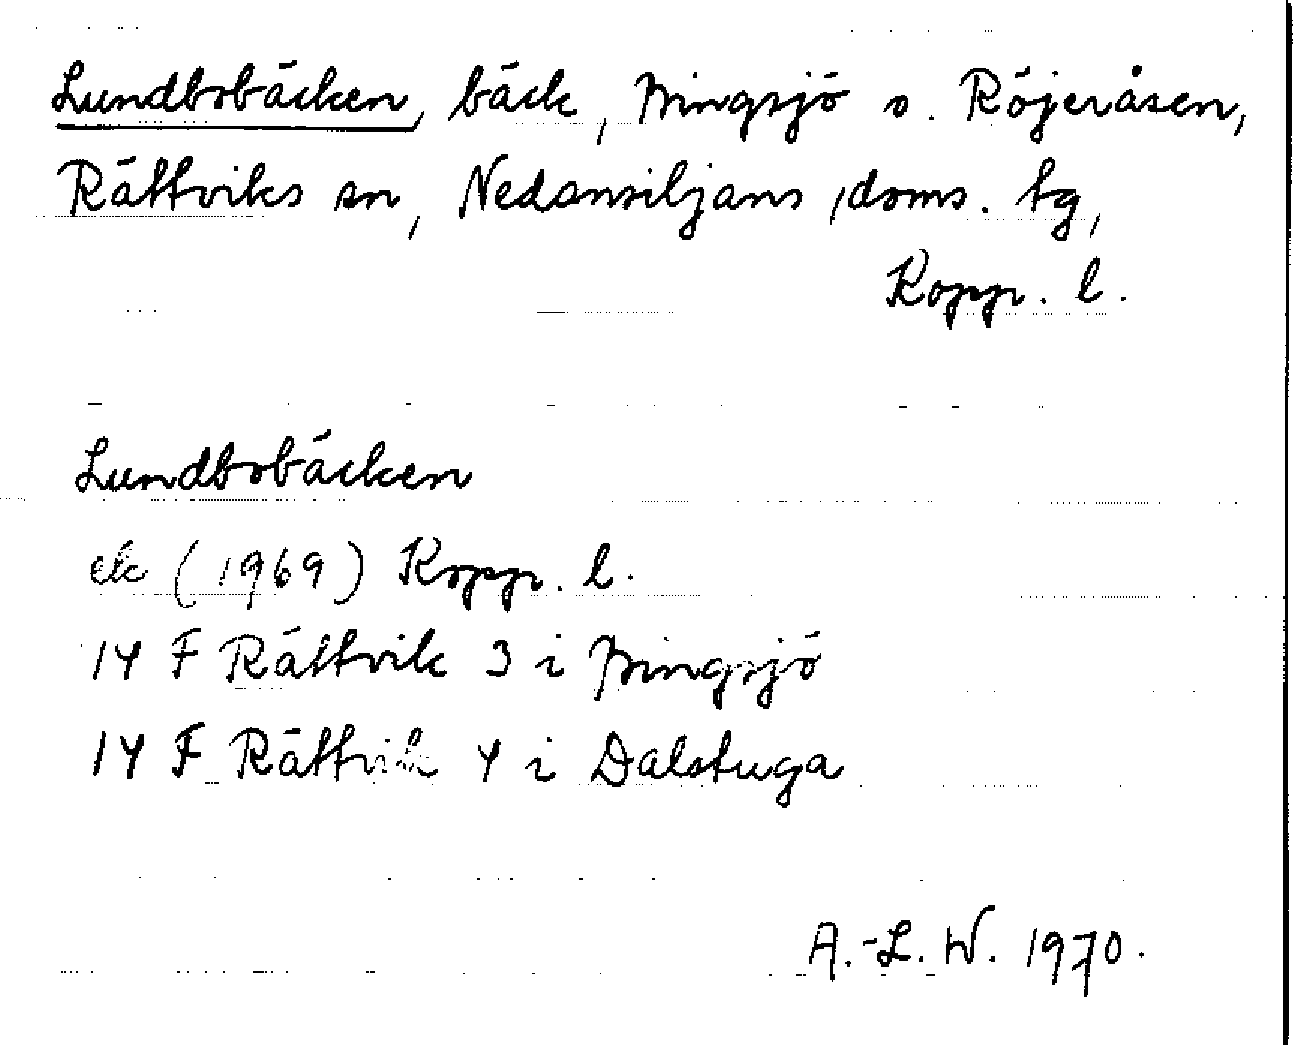 Lundbobäcken, bäck, Bingsjö o. Röjeråsen,
Rättviks sn, Nedansiljans doms. tg,
Kopp. l.
Lundbobäcken
ek (1969) Kopp. l.
14 F Rättvik 3 i Bingsjö
14 F Rättvik 4 i Dalstuga
A.-L. W. 1970.